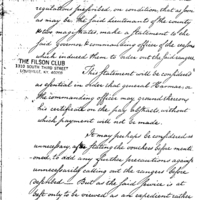 regulations prescribed, on condition, that as soon
as may be, the said lieutenant of the county
or the magistrates, make a statement to the
said governor & commanding officer of the reasons
which induced them to order out the said rangers
THE FILSON CLUB
1310 SOUTH THIRD STREET
LOUISVILLE, KY. 40208
This statement will be considered
as essential in order that general Harmar, or
the commanding officer may ground thereon
his certificate on the pay abstracts without
which payment will not be made.
It may perhaps be considered as
unnecessary after stating the vouchers before menti
oned, to add any further precautions against
unnecessarily calling out the rangers before
specified. — But as the said service is at
best only to be viewed as an expedient rather